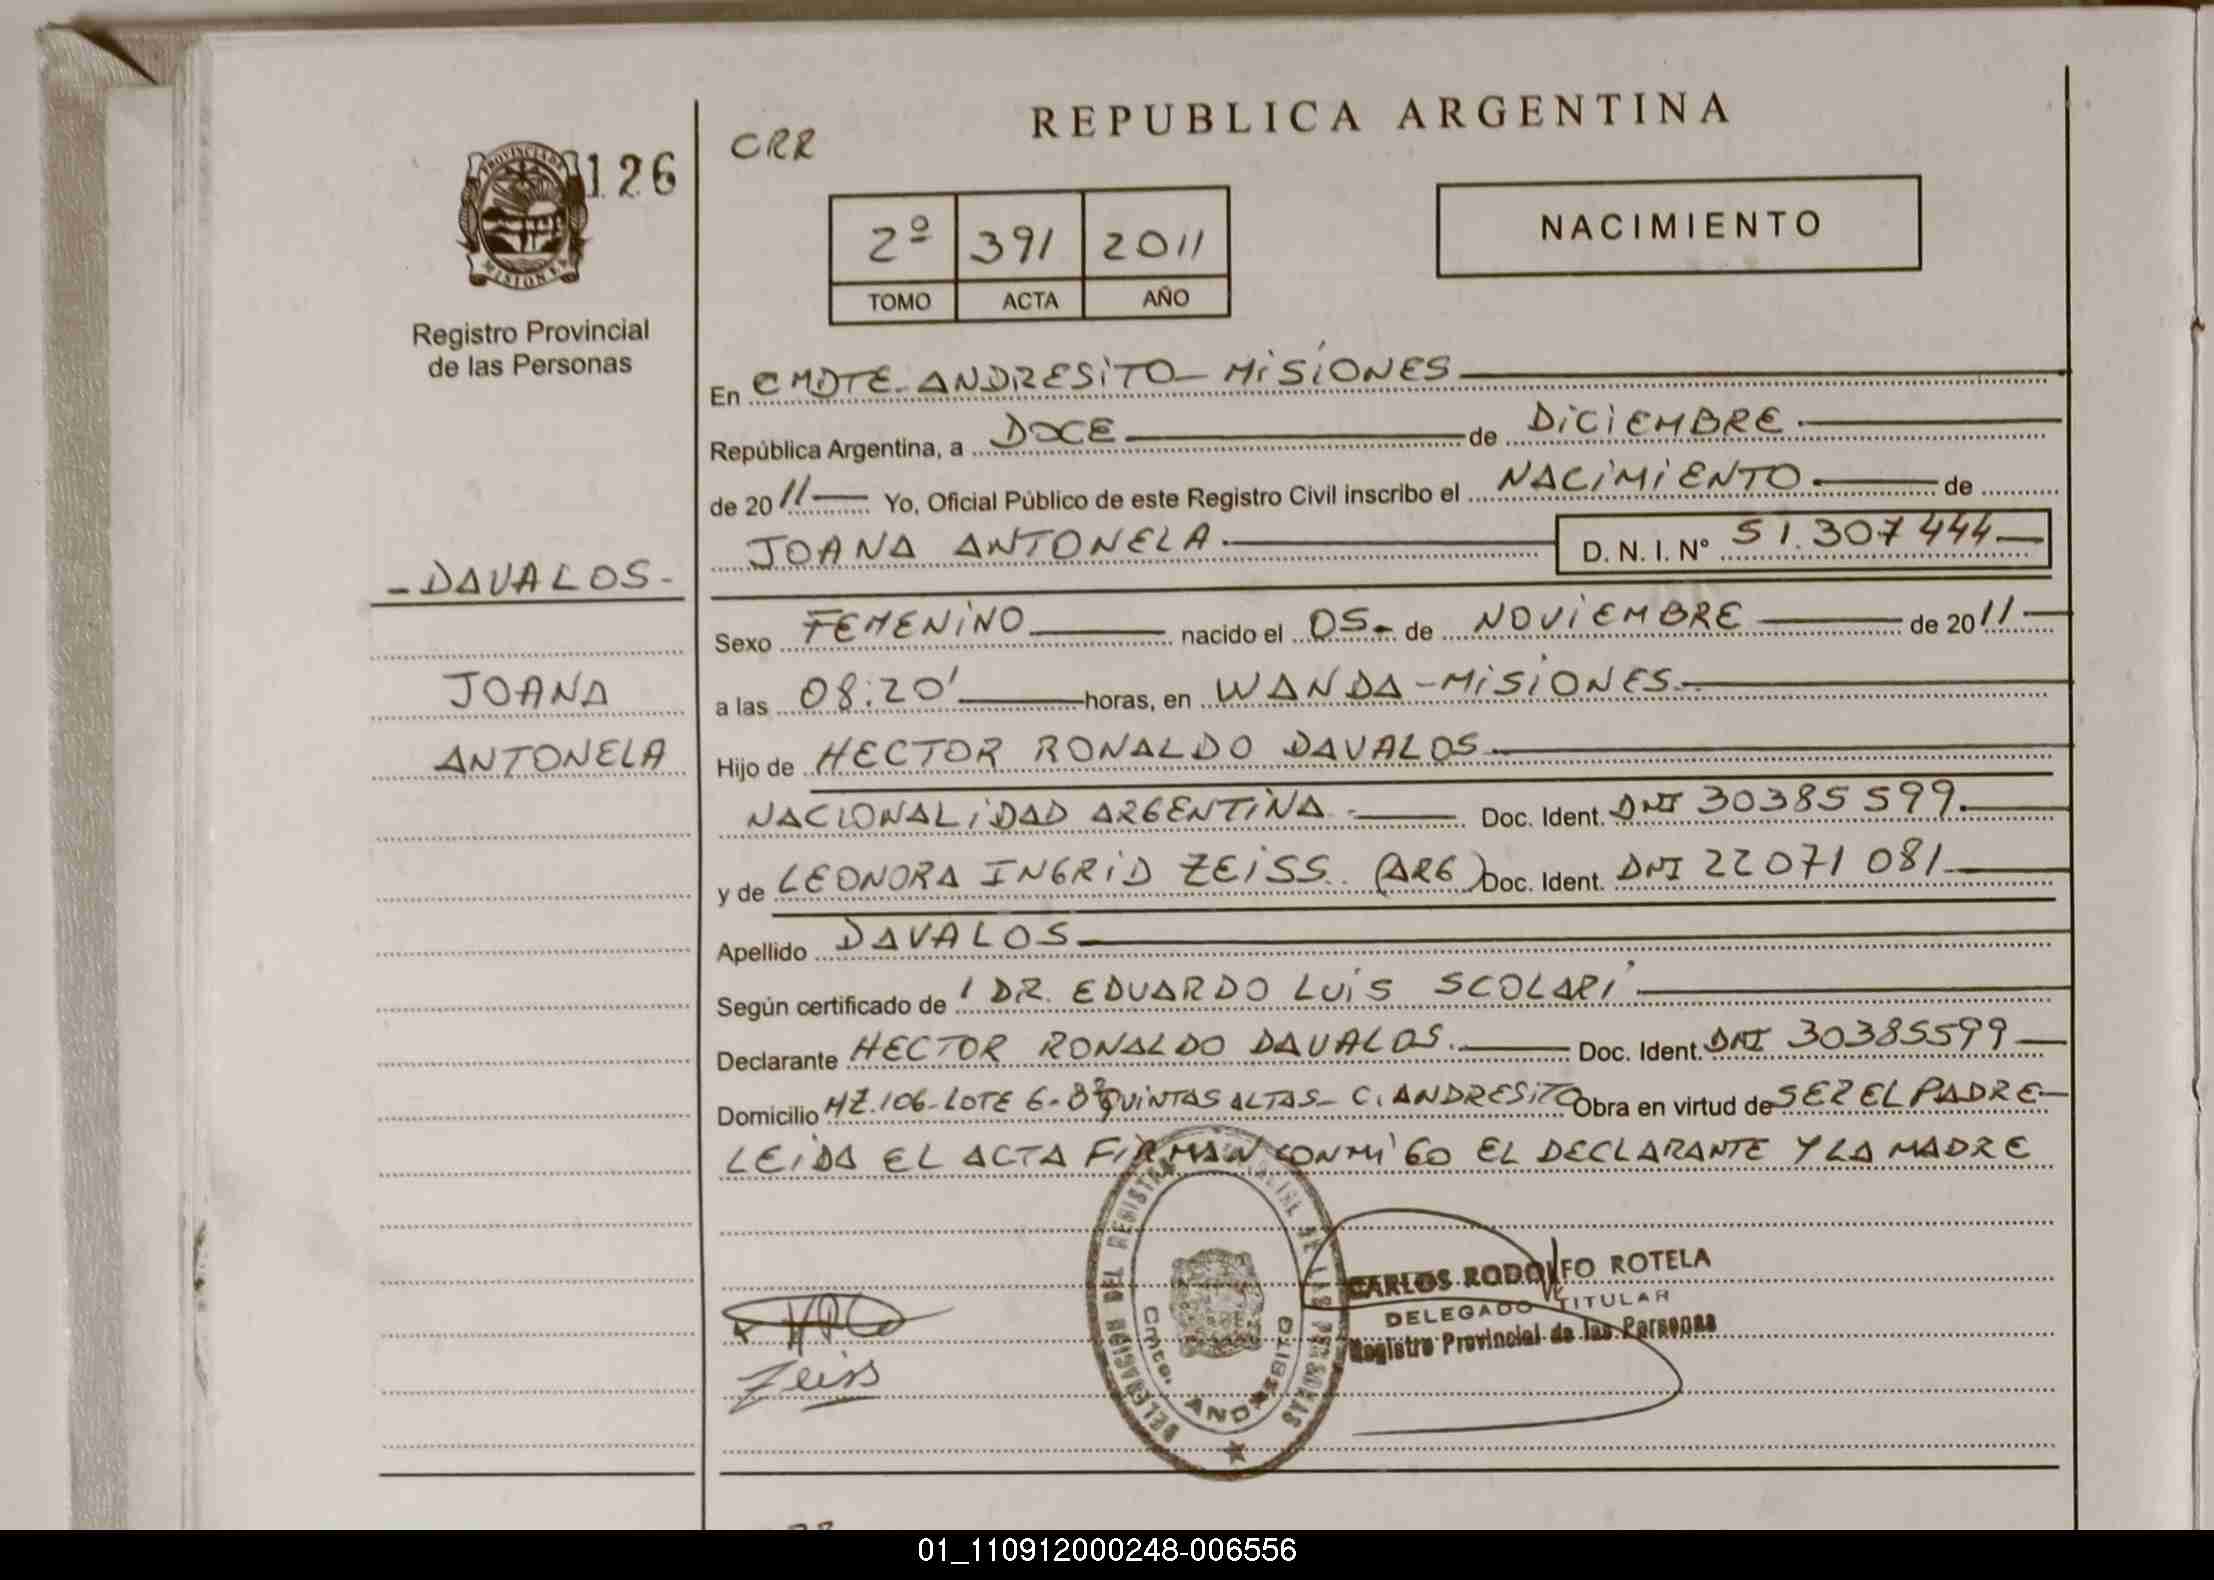 REPUBLICA ARGENTINA
CRR
PROVINCIA DE
MISIONES
126
2º 391 2011
TOMO ACTA AÑO
NACIMIENTO
Registro Provincial
de las Personas
En CMDTE. ANDRESITO - MISIONES
República Argentina, a DOCE de DICIEMBRE
de 20 11 Yo, Oficial Público de este Registro Civil inscribo el NACIMIENTO de
JOANA ANTONELA D. N. I. Nº 51.307444
- DAVALOS -
JOANA
ANTONELA
Sexo FEMENINO nacido el 05 - de NOVIEMBRE de 20 11
a las 08:20' horas, en WANDA - MISIONES
Hijo de HECTOR RONALDO DAVALOS
NACIONALIDAD ARGENTINA Doc. Ident. DNI 30385599.
y de LEONORA INGRID ZEISS. (ARG) Doc. Ident. DNI 22071081
Apellido DAVALOS
Según certificado de DR. EDUARDO LUIS SCOLARI
Declarante HECTOR RONALDO DAVALOS. Doc. Ident. DNI 30385599
Domicilio MZ.106-LOTE 6- QUINTAS ALTAS - C. ANDRESITO Obra en virtud de SER EL PADRE -
LEIDA EL ACTA FIRMAN CONMIGO EL DECLARANTE Y LA MADRE
CARLOS RODOLFO ROTELA
DELEGADO TITULAR
Registro Provincial de las Personas
Zeiss
DELEGACION DEL REGISTRO PROVINCIAL DE LAS PERSONAS
Cmte. ANDRESITO
01_110912000248-006556